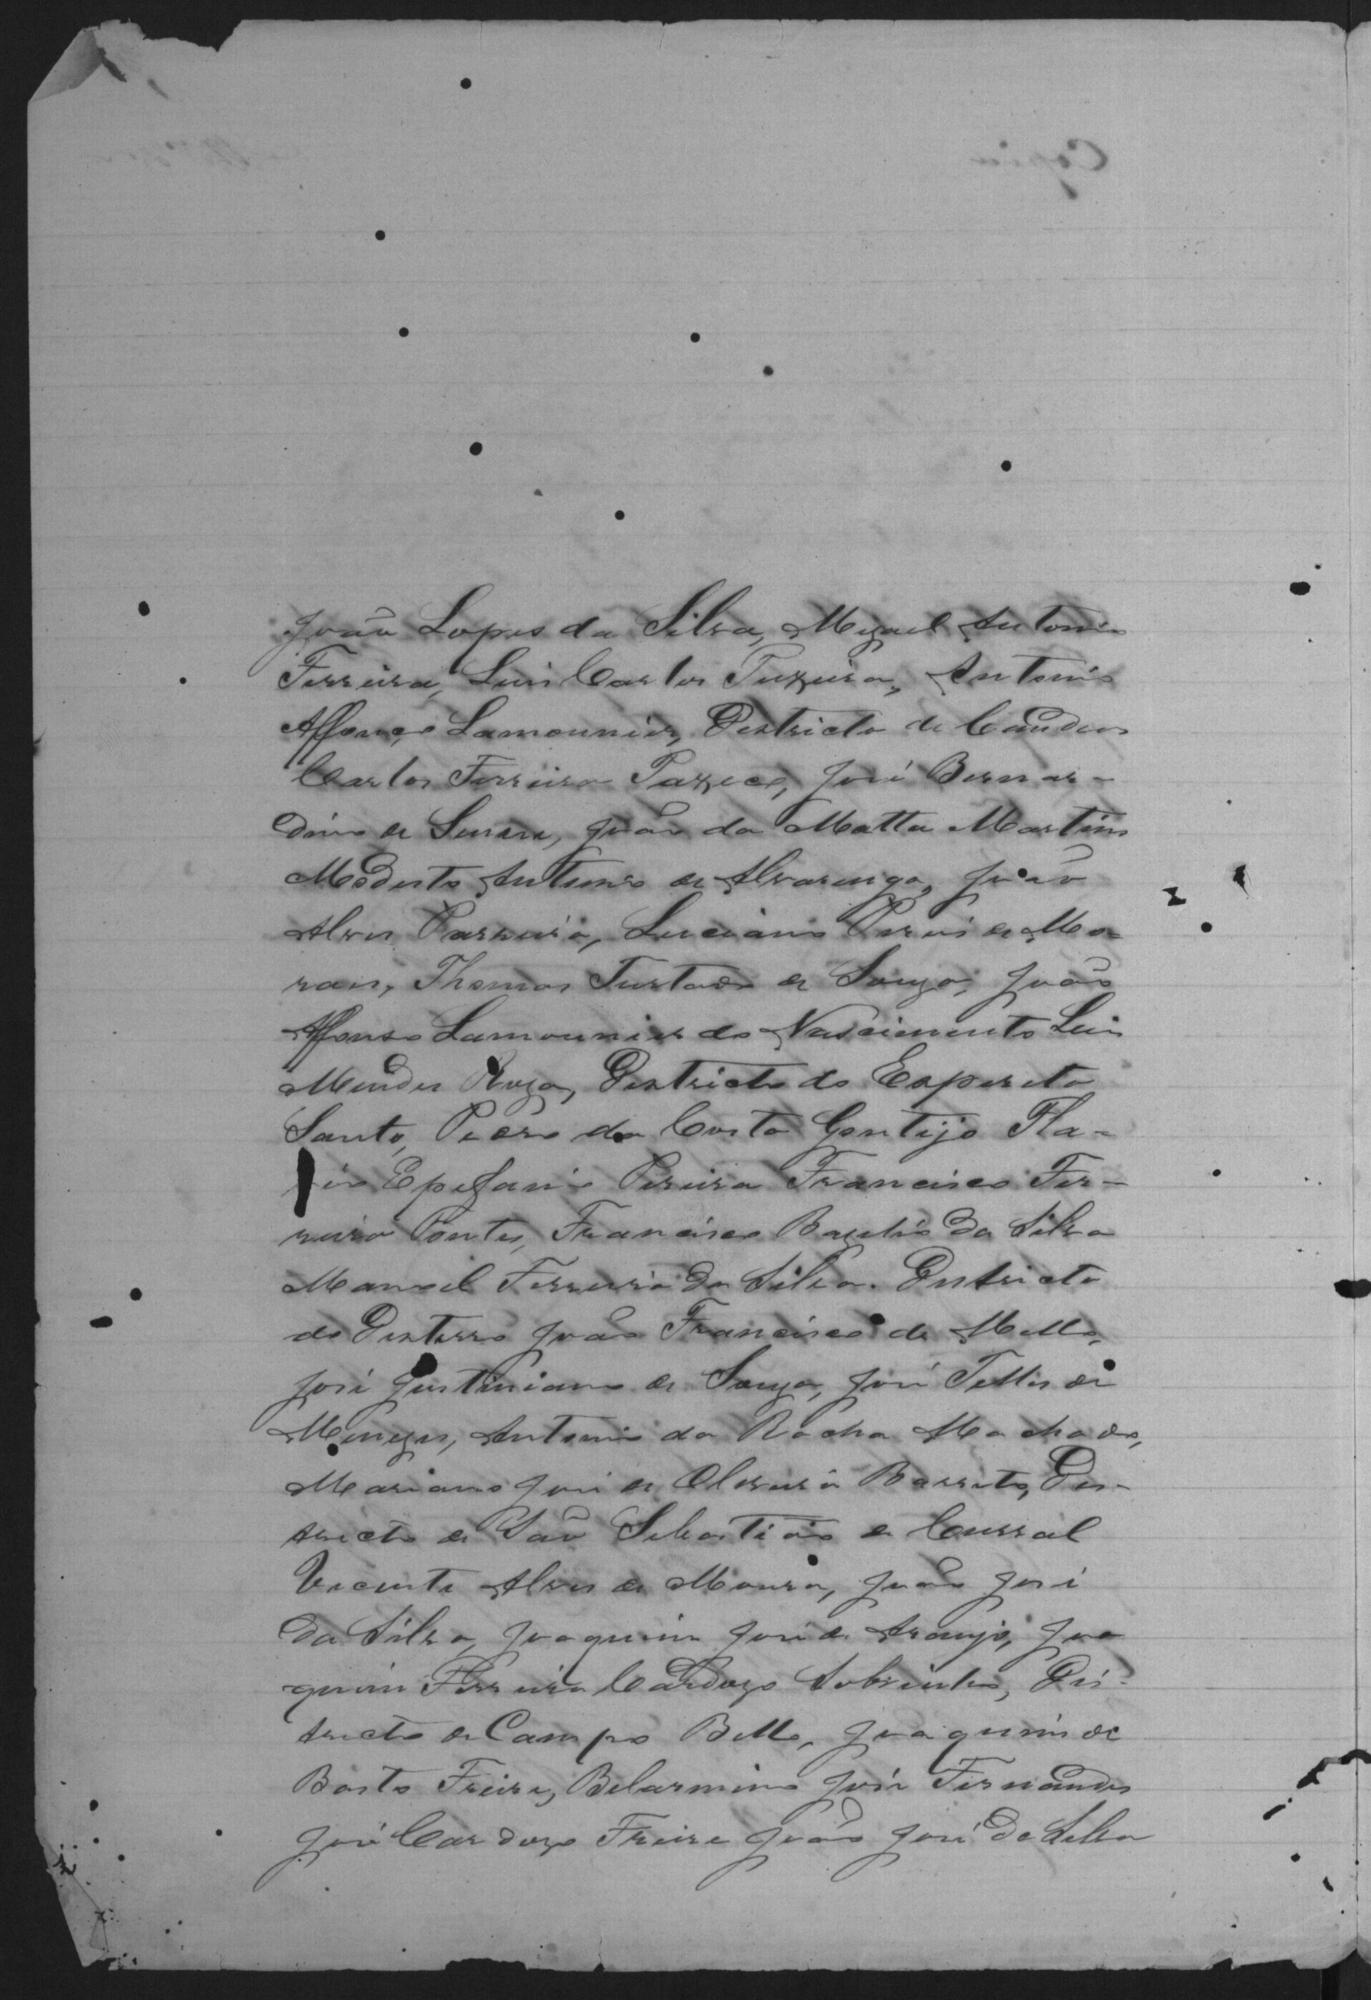 João Lopes da Silva, Miguel Antonio
Ferreira, Luis Carlos Teixeira, Antonio
Affonço Lamounier, Destricto de Candeas
Carlos Ferreira José Bernar-
dino de João da Matta Martins
Modesto Antonio de Alvarenga, João
Alves Parreira, Luciano de Mo-
raes, Thomas Furtado de Souza, João
Affonso Lamounier do Nascimento Luis
Mendes Destricto do Esperito
Santo, Pedro da Costa Gontijo Fla-
Epefanio Pereira Francisco Fer-
reira Pontes, Francisco Bazilio da Silva
Manoel Ferreira da Silva. Destricto
do Desterro João Francisco de Mello,
José Justiniano de Souza, José Telles de
Menezes, Antonio da Rocha Machado,
Mariano José de Oliveira Barreto, Des-
tricto de São Sebastião do Curral
Vicente Alves de Moura, João José
da Silva, Joaquim José de Araujo, Joa
quim Ferreira Cardozo Sobrinho, Dis-
tricto de Campo Bello, Joaquim de
Basto Freire, Belarmino José Fernandes
José Cardozo Freire João José da Silva